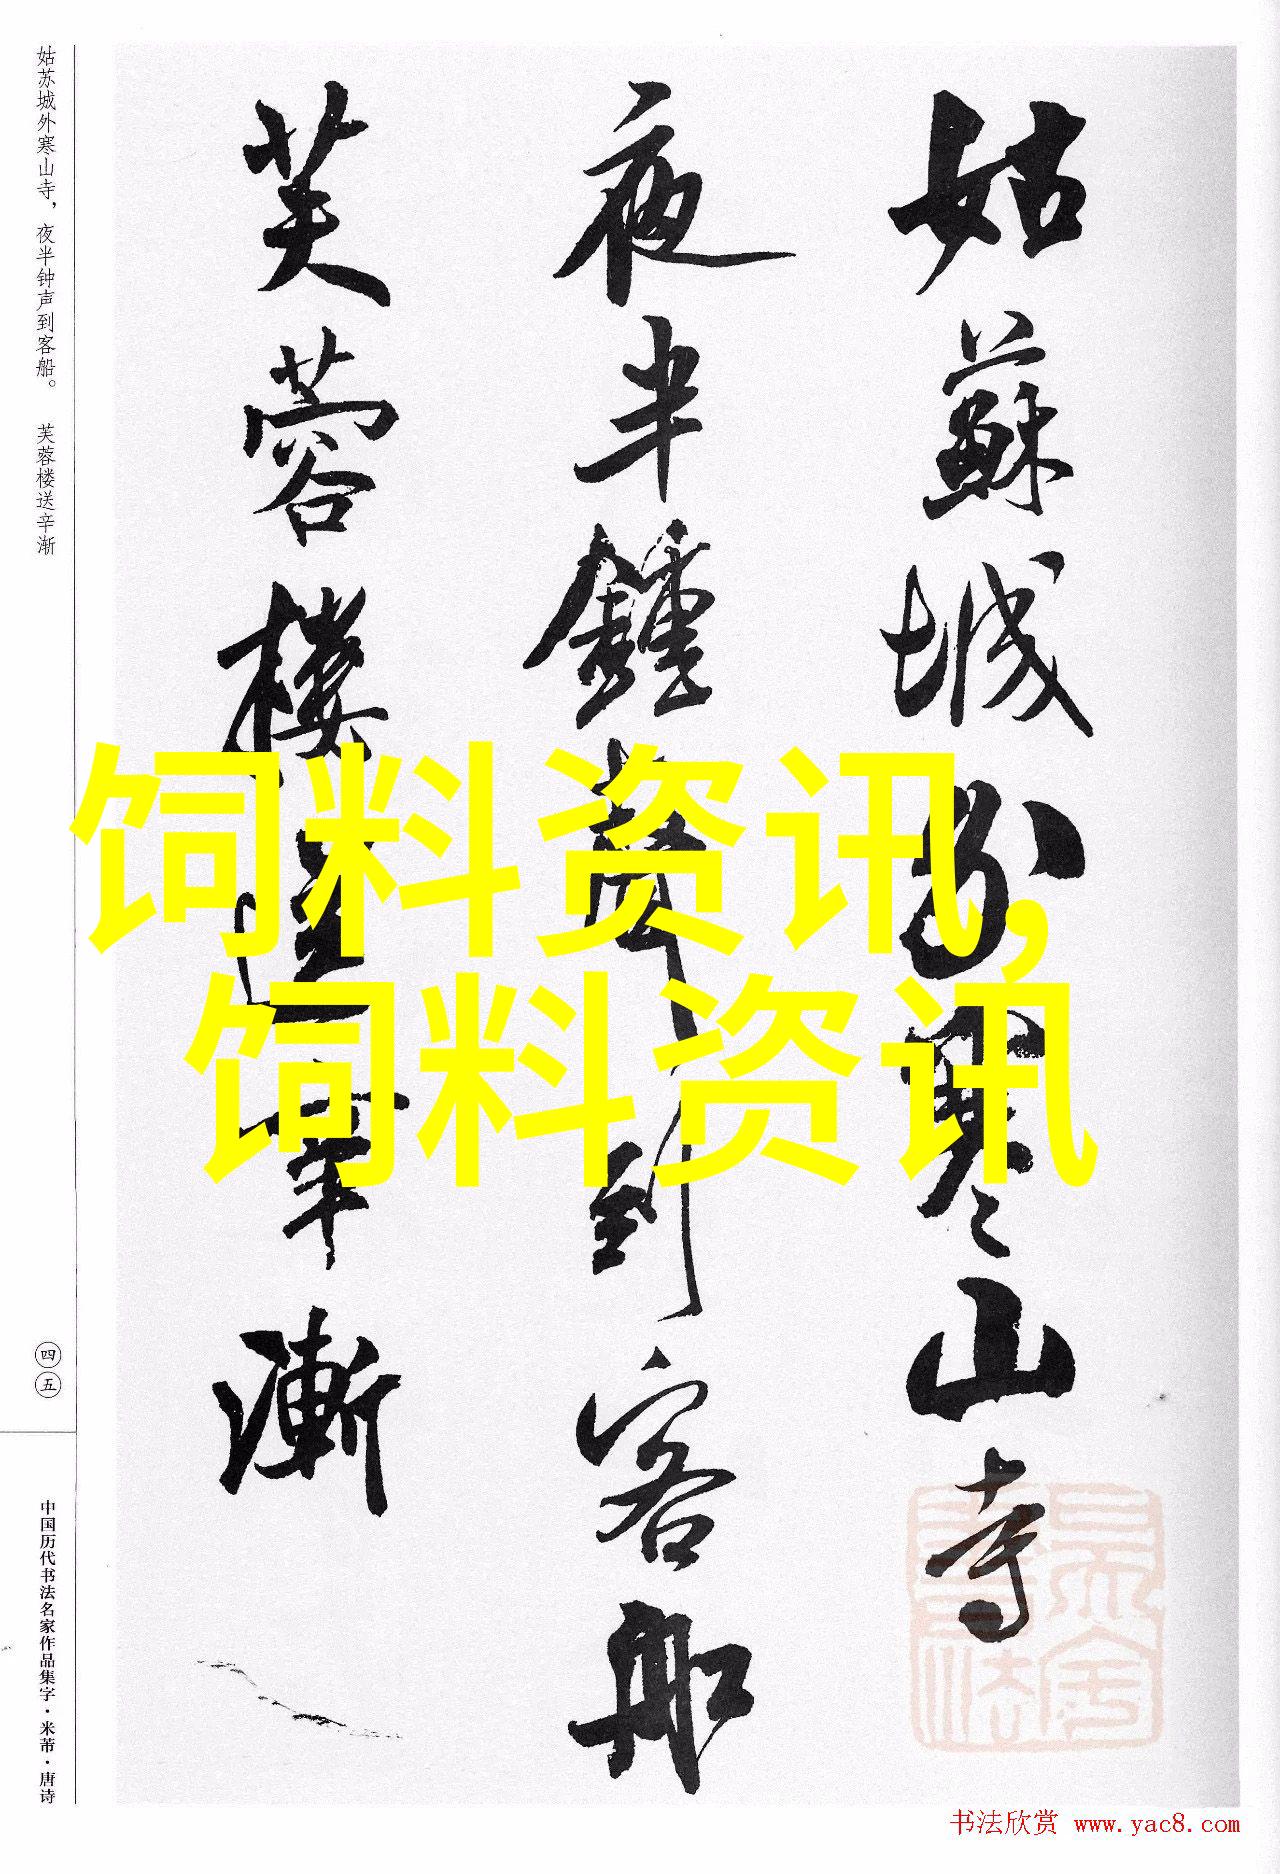 姑苏城外寒山寺，夜半钟声到客船。 芙蓉楼送辛渐
姑蘇城外寒山寺
夜半鍾聲到客船
芙蓉樓送辛漸
饲料资讯,
饲料资讯
四五
中国历代书法名家作品集字·米芾·唐诗
书法欣赏 www.yac8.com